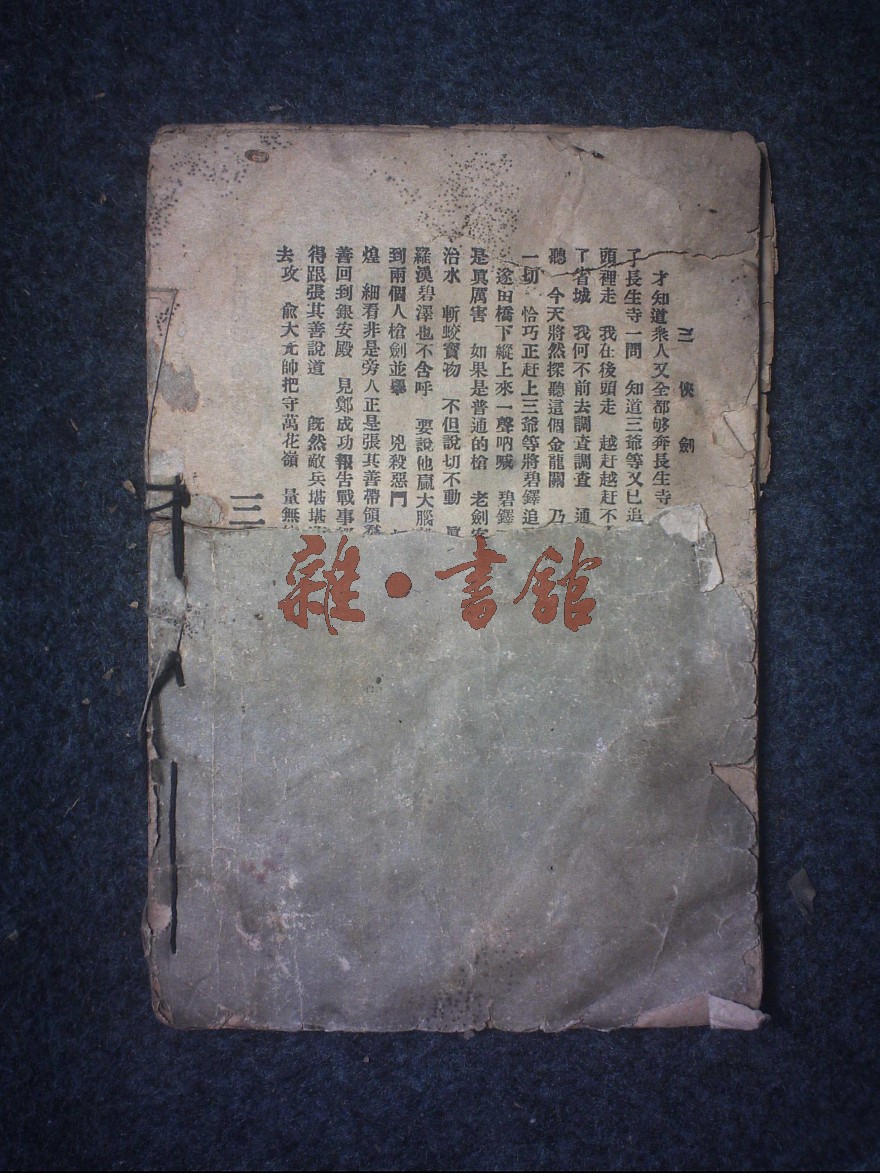 三俠劍
才知道衆人又全都够奔長生寺
子長生寺一問　知道三爺等又已追
頭裡走　我在後頭走　越赶越赶不
了省城　我何不前去調查調查　通
聽　今天將然探聽這個金龍關　乃
一切　恰巧正赶上三爺等將碧鐸追
遂由橋下縱上來一聲吶喊　碧鐸
是真厲害　如果是普通的槍　老劍客
治水　斬蛟寳物　不但說切不動
羅漢碧澤也不含呼　要說他贏大腦
到兩個人槍劍並舉　兇殺惡鬥
煌　細看非是旁人正是張其善帶領
善回到銀安殿　見鄭成功報告戰事
得跟張其善說道　旣然敵兵堪堪
去攻　兪大元帥把守萬花嶺　量無
三
雜·書館